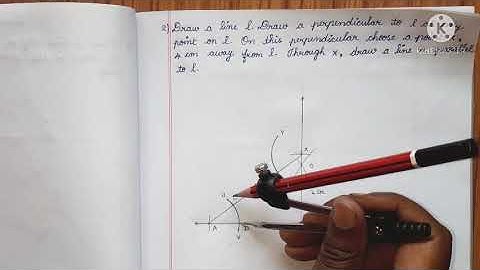 2) Draw a line l. Draw a perpendicular to l at any
point on l. On this perpendicular choose a point x,
4 cm away from l. Through x, draw a line m parallel
to l.
Y
X
4 cm
A
B
K